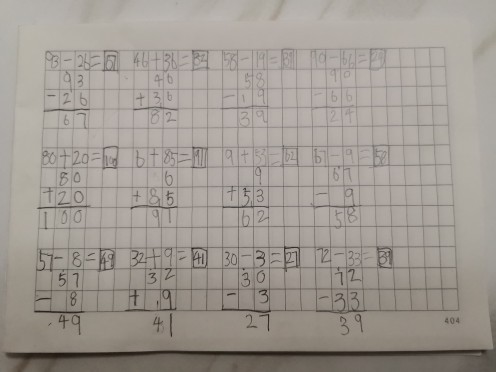 93-26=67 46+36=82 58-19=39 90-66=24
93 46 58 90
-26 +36 -19 -66
67 82 39 24
80+20=100 6+85=91 9+53=62 67-9=58
80 6 9 67
+20 +85 +53 -9
100 91 62 58
57-8=49 32+9=41 30-3=27 72-33=39
57 32 30 72
-8 +9 -3 -33
49 41 27 39
404